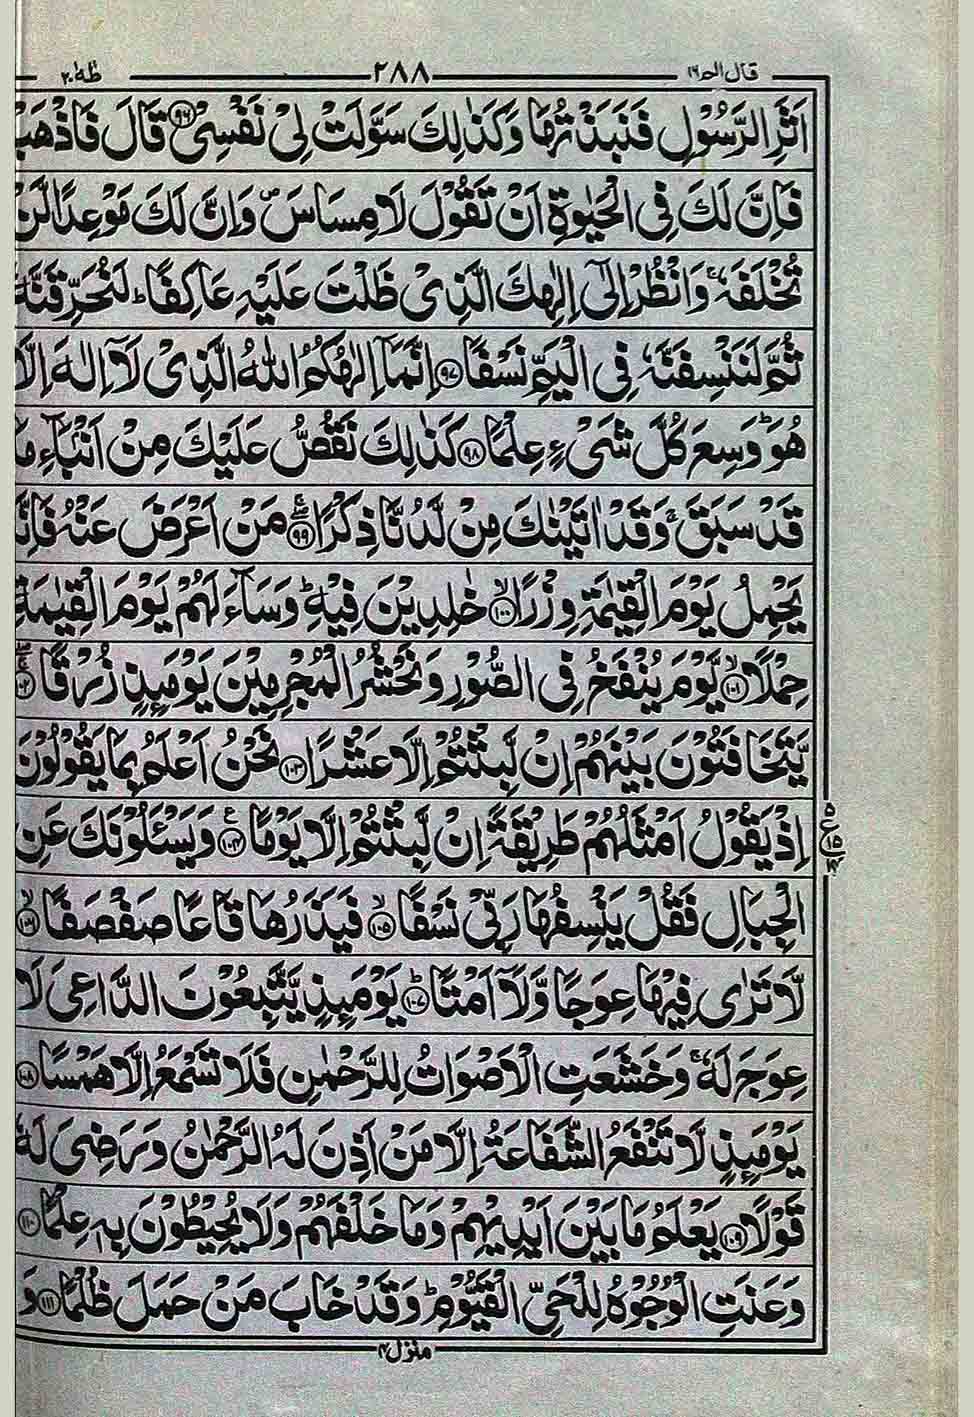 قال الم ١٦ ٢٨٨ طٰهٰ ٢٠
اَثَرِ الرَّسُوْلِ فَنَبَذْتُهَا وَكَذٰلِكَ سَوَّلَتْ لِیْ نَفْسِیْ ۝۹۶ قَالَ فَاذْهَبْ
فَاِنَّ لَكَ فِی الْحَيٰوةِ اَنْ تَقُوْلَ لَا مِسَاسَ ۪ وَاِنَّ لَكَ مَوْعِدًا لَّنْ
تُخْلَفَهٗ ۚ وَانْظُرْ اِلٰۤى اِلٰهِكَ الَّذِیْ ظَلْتَ عَلَيْهِ عَاكِفًا ؕ لَنُحَرِّقَنَّهٗ
ثُمَّ لَنَنْسِفَنَّهٗ فِی الْيَمِّ نَسْفًا ۝۹۷ اِنَّمَاۤ اِلٰهُكُمُ اللّٰهُ الَّذِیْ لَاۤ اِلٰهَ اِلَّا
هُوَ ؕ وَسِعَ كُلَّ شَیْءٍ عِلْمًا ۝۹۸ كَذٰلِكَ نَقُصُّ عَلَيْكَ مِنْ اَنْۢبَآءِ مَا
قَدْ سَبَقَ ۚ وَقَدْ اٰتَيْنٰكَ مِنْ لَّدُنَّا ذِكْرًا ۝۹۹ مَنْ اَعْرَضَ عَنْهُ فَاِنَّهٗ
يَحْمِلُ يَوْمَ الْقِيٰمَةِ وِزْرًا ۝۱۰۰ خٰلِدِيْنَ فِيْهِ ؕ وَسَآءَ لَهُمْ يَوْمَ الْقِيٰمَةِ
حِمْلًا ۝۱۰۱ يَّوْمَ يُنْفَخُ فِی الصُّوْرِ وَنَحْشُرُ الْمُجْرِمِيْنَ يَوْمَئِذٍ زُرْقًا ۝۱۰۲
يَّتَخَافَتُوْنَ بَيْنَهُمْ اِنْ لَّبِثْتُمْ اِلَّا عَشْرًا ۝۱۰۳ نَحْنُ اَعْلَمُ بِمَا يَقُوْلُوْنَ
اِذْ يَقُوْلُ اَمْثَلُهُمْ طَرِيْقَةً اِنْ لَّبِثْتُمْ اِلَّا يَوْمًا ۝۱۰۴ وَيَسْـَٔلُوْنَكَ عَنِ
الْجِبَالِ فَقُلْ يَنْسِفُهَا رَبِّیْ نَسْفًا ۝۱۰۵ فَيَذَرُهَا قَاعًا صَفْصَفًا ۝۱۰۶
لَّا تَرٰى فِيْهَا عِوَجًا وَّلَاۤ اَمْتًا ۝۱۰۷ يَوْمَئِذٍ يَّتَّبِعُوْنَ الدَّاعِیَ لَا
عِوَجَ لَهٗ ۚ وَخَشَعَتِ الْاَصْوَاتُ لِلرَّحْمٰنِ فَلَا تَسْمَعُ اِلَّا هَمْسًا ۝۱۰۸
يَوْمَئِذٍ لَّا تَنْفَعُ الشَّفَاعَةُ اِلَّا مَنْ اَذِنَ لَهُ الرَّحْمٰنُ وَرَضِیَ لَهٗ
قَوْلًا ۝۱۰۹ يَعْلَمُ مَا بَيْنَ اَيْدِيْهِمْ وَمَا خَلْفَهُمْ وَلَا يُحِيْطُوْنَ بِهٖ عِلْمًا ۝۱۱۰
وَعَنَتِ الْوُجُوْهُ لِلْحَیِّ الْقَيُّوْمِ ؕ وَقَدْ خَابَ مَنْ حَمَلَ ظُلْمًا ۝۱۱۱ وَ
منزل ٤